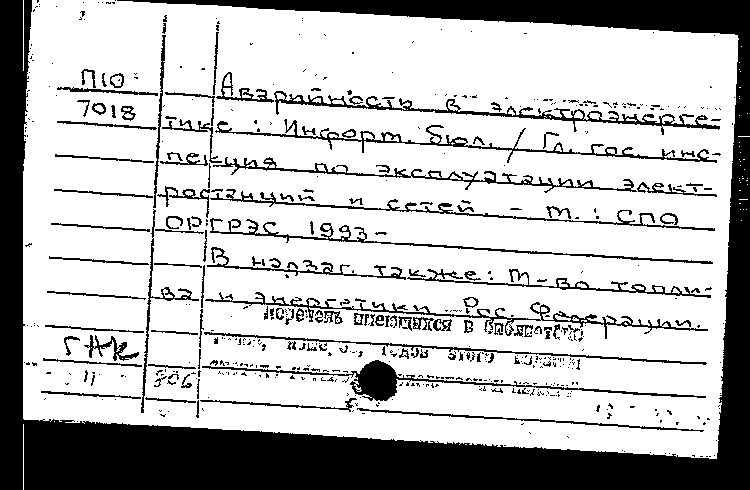 П10
7018
Аварийность в электроэнерге-
тике : Информ. бюл. / Гл. гос. инс-
пекция по эксплуатации элект-
ростанций и сетей. - М. : СПО
ОРГРЭС, 1993-
В надзаг. также: М-во топли-
ва и энергетики Рос. Федерации.
перечень имеющихся в библиотеке
годов этого издания
ГАК
11 806